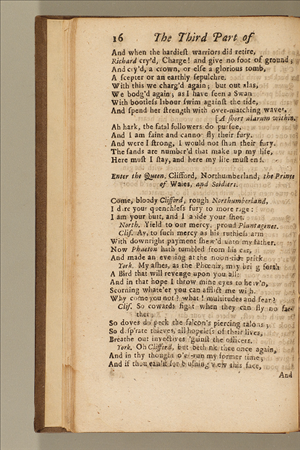 16 The Third Part of
And when the hardiest warriors did retire,
Richard cry'd, Charge! and give no foot of ground,
And cry'd, a crown, or else a glorious tomb,
A scepter or an earthly sepulchre.
With this we charg'd again; but out alas,
We bodg'd again; as I have seen a Swan
With bootless labour swim against the tide,
And spend her strength with over-matching waves.
[A short alarum within.
Ah hark, the fatal followers do pursue,
And I am faint and cannot fly their fury.
And were I strong, I would not shun their fury.
The sands are number'd that make up my life,
Here must I stay, and here my life must end.
Enter the Queen, Clifford, Northumberland, the Prince
of Wales, and Soldiers.
Come, bloody Clifford, rough Northumberland,
I dare your quenchless fury to more rage:
I am your butt, and I abide your shot.
North. Yield to our mercy, proud Plantagenet.
Clif. Ay, to such mercy as his ruthless arm
With downright payment shew'd unto my father.
Now Phaeton hath tumbled from his car,
And made an evening at the noon-tide prick.
York. My ashes, as the Phœnix, may bring forth
A Bird that will revenge upon you all:
And in that hope I throw mine eyes to heav'n,
Scorning whate'er you can afflict me with.
Why come you not? what! multitudes and fear?
Clif. So cowards fight when they can fly no far-
ther;
So doves do peck the falcon's piercing talons;
So desp'rate thieves, all hopeless of their lives,
Breathe out invectives 'gainst the officers.
York. Oh Clifford, but beth nk thee once again,
And in thy thought o'er-run my former time;
And if thou can'st for blushing view this face,
And